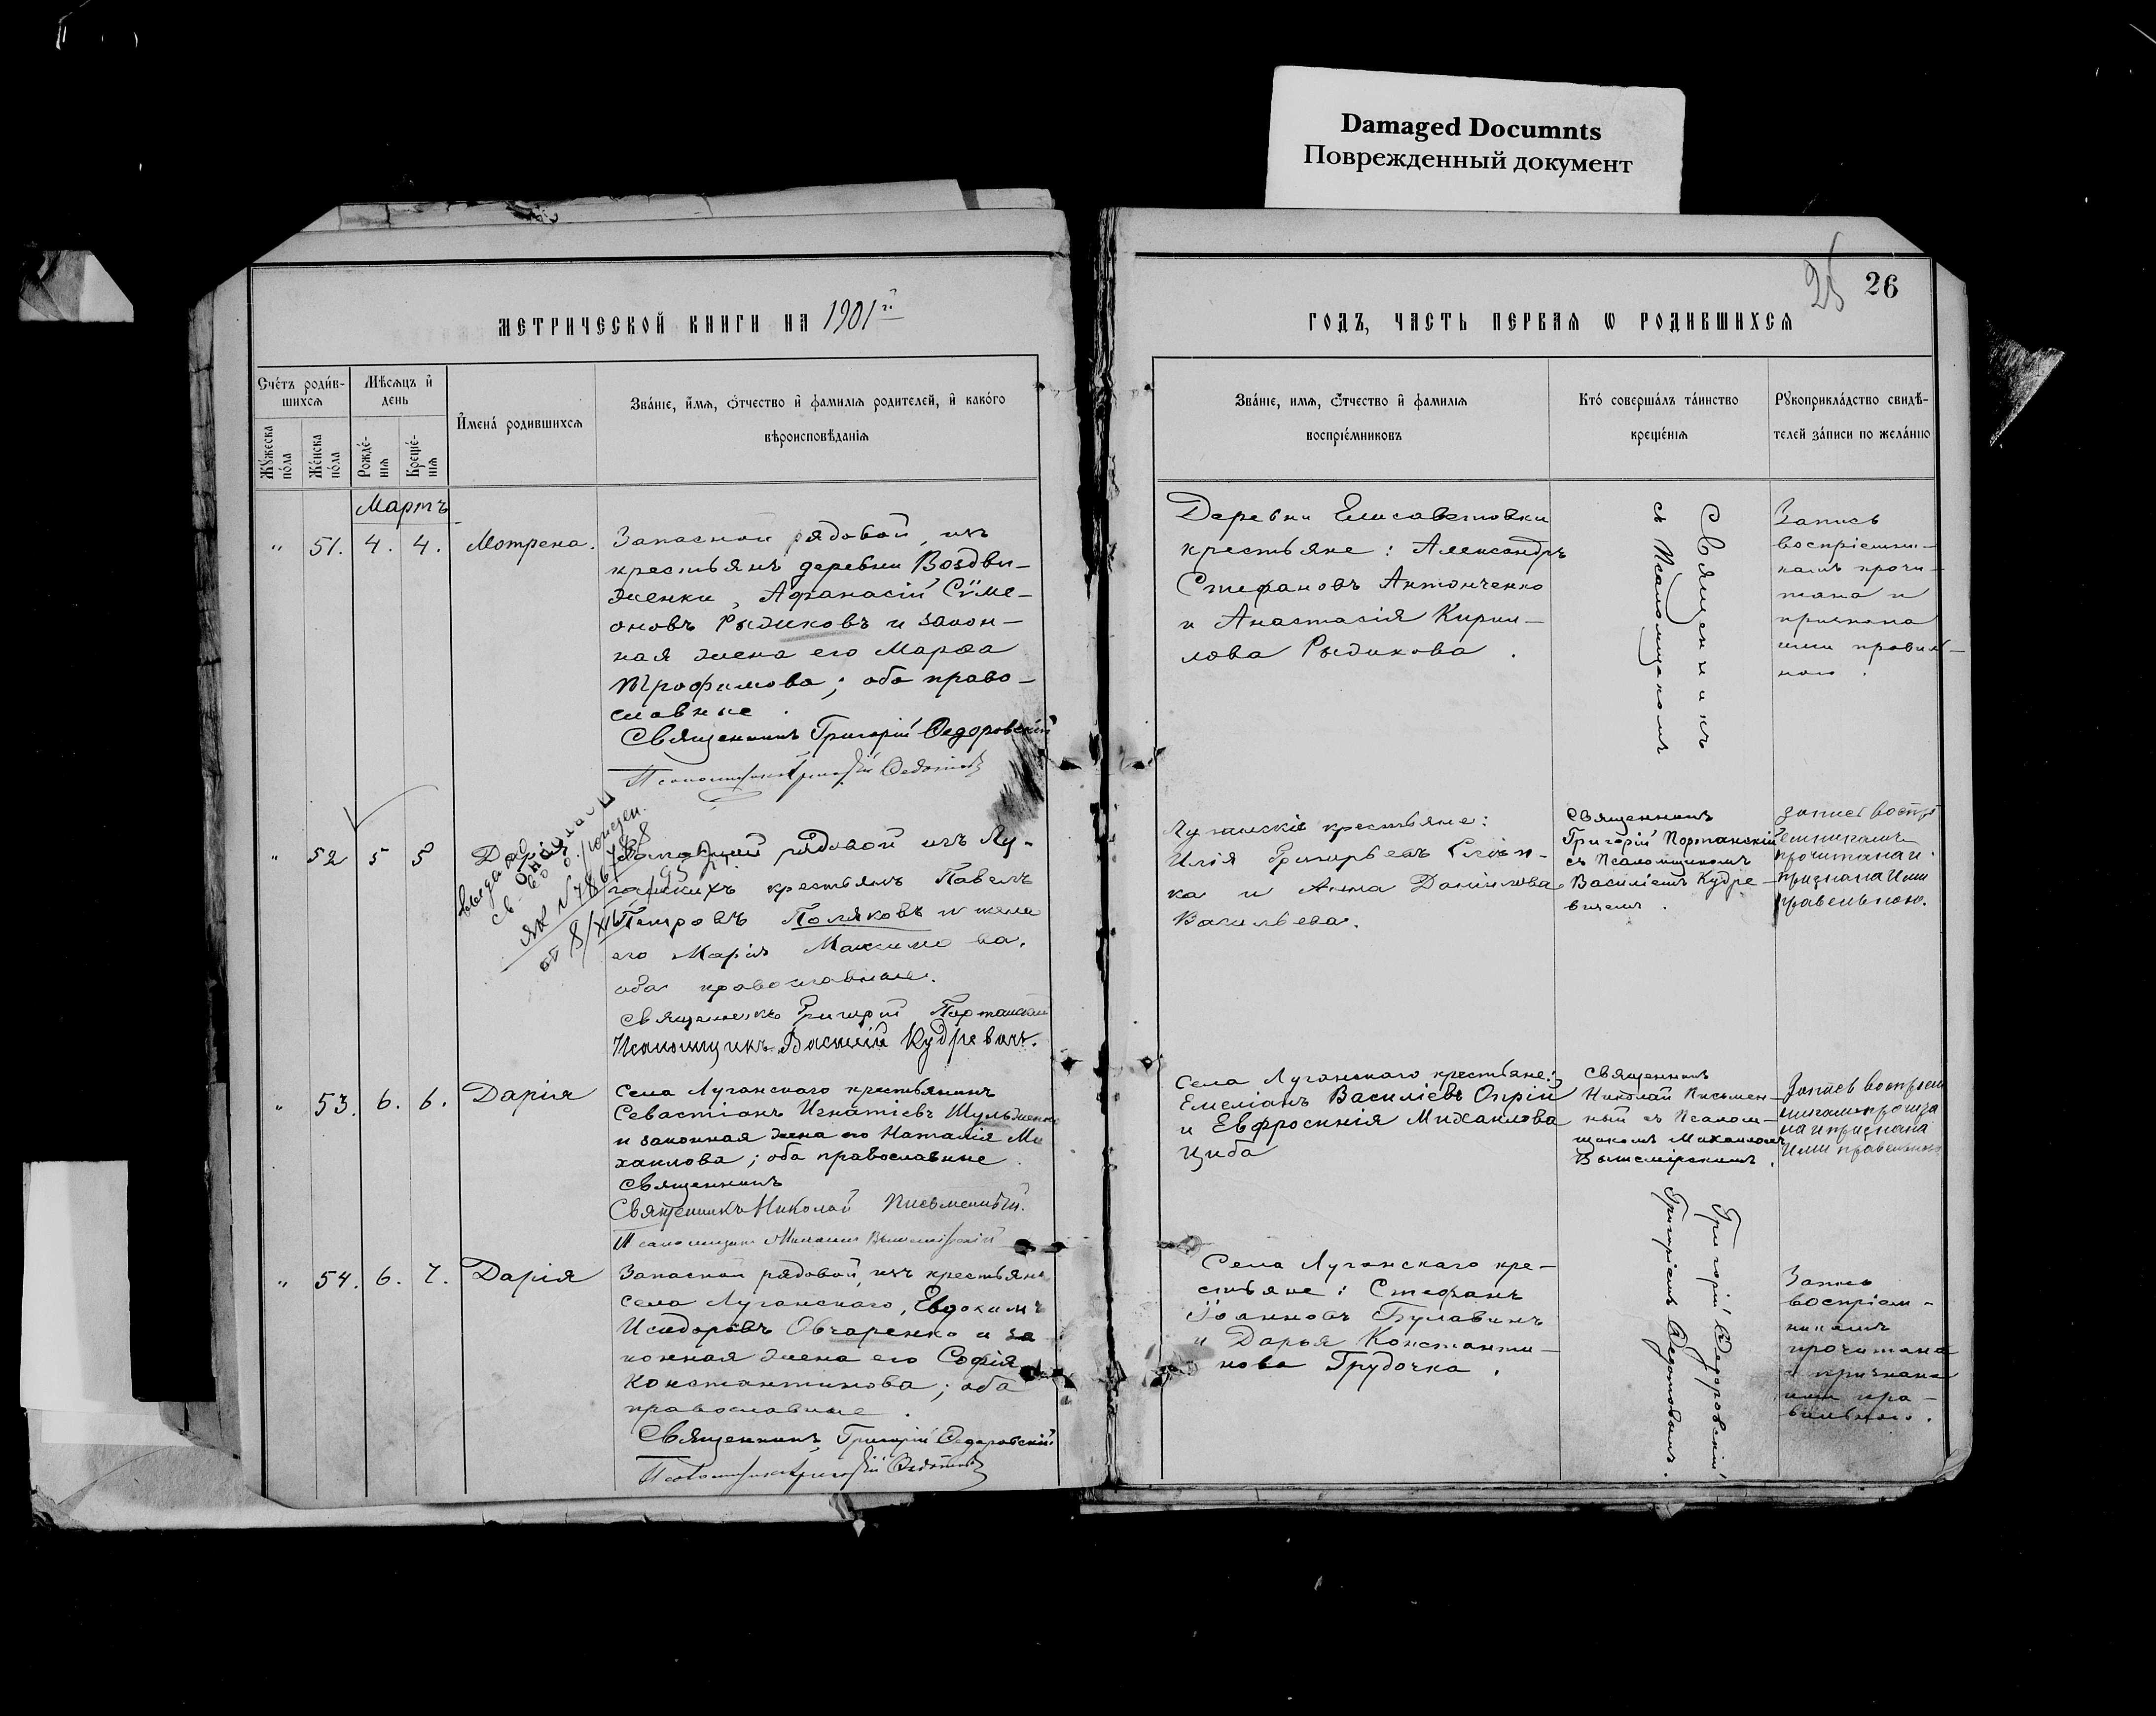 Damaged Documnts
Поврежденный документ
25 26
МЕТРИЧЕСКОЙ КНИГИ НА 1901 й
ГОДЪ, ЧАСТЬ ПЕРВАѦ Ѡ РОДИВШИХСѦ
Счетъ родив-
шихсѧ
Мѣсѧцъ и
день
Имена родившихсѧ
Званіе, имѧ, отчество и фамиліѧ родителей, и какого
вѣроисповѣданіѧ
Мужеска
пола
Женска
пола
Рожде-
ніѧ
Креще-
ніѧ
Званіе, имѧ, отчество и фамиліѧ
воспріемниковъ
Кто совершалъ таинство
крещеніѧ
Рукоприкладство свидѣ-
телей записи по желанію
Мартъ
" 51. 4. 4. Мотрена.
Запасной рядовой, изъ
крестьянъ деревни Воздви-
женки, Афанасій Сѵме-
оновъ Рыдиковъ и закон-
ная жена его Марѳа
Трофимова; оба право-
славные.
Священникъ Григорій Ѳедоровскій
Псаломщикъ Григорій Ѳедотовъ
Деревни Елисаветовки
крестьяне: Александръ
Стефановъ Антонченко
и Анастасія Кирил-
лова Рыдикова.
Священникъ
съ Псаломщикомъ
Запись
воспріемни-
камъ прочи-
тана и
признана
ими правиль-
ною.
" 52 5 5 Дарія
Запасный рядовой изъ Лу-
ганскихъ крестьянъ Павелъ
Петровъ Поляковъ и жена
его Марія Максимова,
оба православные.
Священникъ Григорій Портанскій
Псаломщикъ Василій Кудревичъ.
св-во о рожден.
от 8/XII
Луганскіе крестьяне:
Илія Григорьевъ
ка и Анна Даниилова
Васильева.
Священникъ
Григорій Портанскій
съ Псаломщикомъ
Василіемъ Кудре-
вичемъ.
запись воспрі
емникамъ
прочитана и
признана Ими
правельною.
" 53. 6. 6. Дарія
Села Луганскаго крестьянинъ
Севастіанъ Игнатіевъ Шульженко
и законная жена его Наталія Ми
хаилова; оба православные.
Священникъ
Священикъ Николай Письменный.
Псаломщикъ Михаилъ Вышемірскій
Села Луганскаго крестьяне:
Емеліанъ Василіевъ Опрій
и Евфросинія Михаилова
Циба
Священникъ
Николай Письмен-
ный съ Псалом-
щикомъ Михаиломъ
Вышемірскимъ.
Запись воспріем
никамъ прочита
на и признана
Ими правельною
" 54. 6. 7. Дарія
Запасной рядовой, изъ крестьянъ
села Луганскаго, Евдокимъ
Исидоровъ Овчаренко и за
конная жена его Софія
Константинова; оба
православные.
Священникъ Григорій Ѳедоровскій
Псаломщикъ Григорій Ѳедотовъ
Села Луганскаго кре-
стьяне: Стефанъ
Іоанновъ Булавинъ
и Дарья Константи-
нова Грудочка.
Григорій Ѳедоровскій
Григоріемъ Ѳедотовымъ.
Запись
воспріем-
никамъ
прочитана
и признана
ими пра-
вильною.